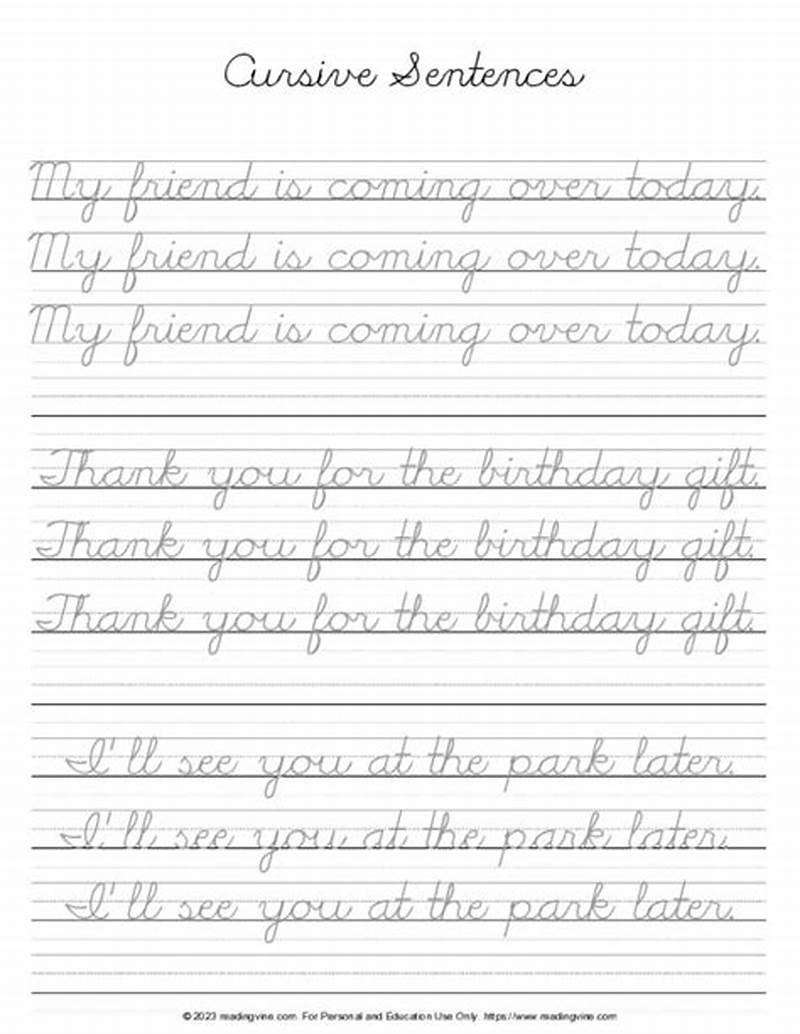 Cursive Sentences
My friend is coming over today.
My friend is coming over today.
My friend is coming over today.
Thank you for the birthday gift.
Thank you for the birthday gift.
Thank you for the birthday gift.
I'll see you at the park later.
I'll see you at the park later.
I'll see you at the park later.
© 2023 readingvine.com For Personal and Education Use Only. https://www.readingvine.com